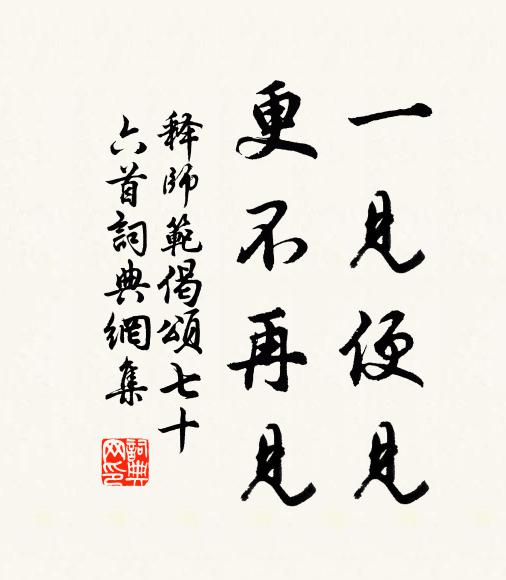 一見便見
更不再見
释師範偈頌七十
六首詞典網集
詞典
网印